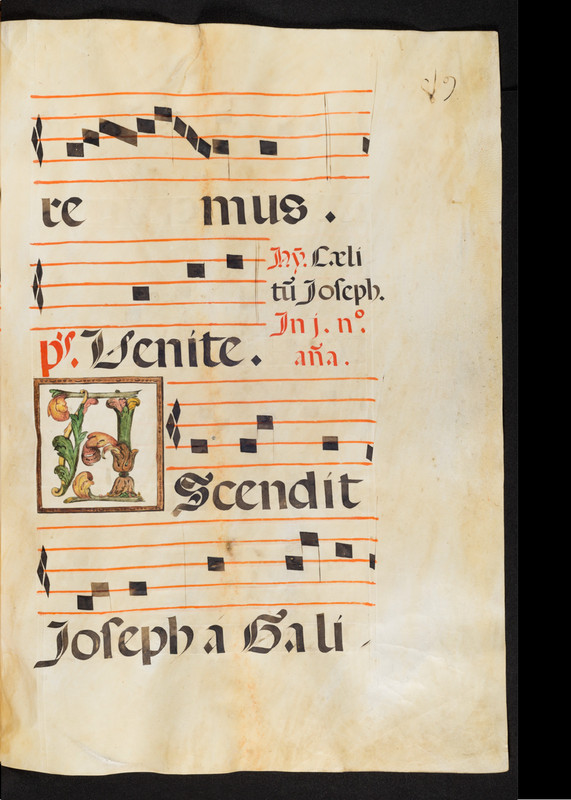 re mus .
Hỹ. Cæli
tū Joseph.
In j. nº.
ps. Venite. aña.
AScendit
Joseph a Gali -